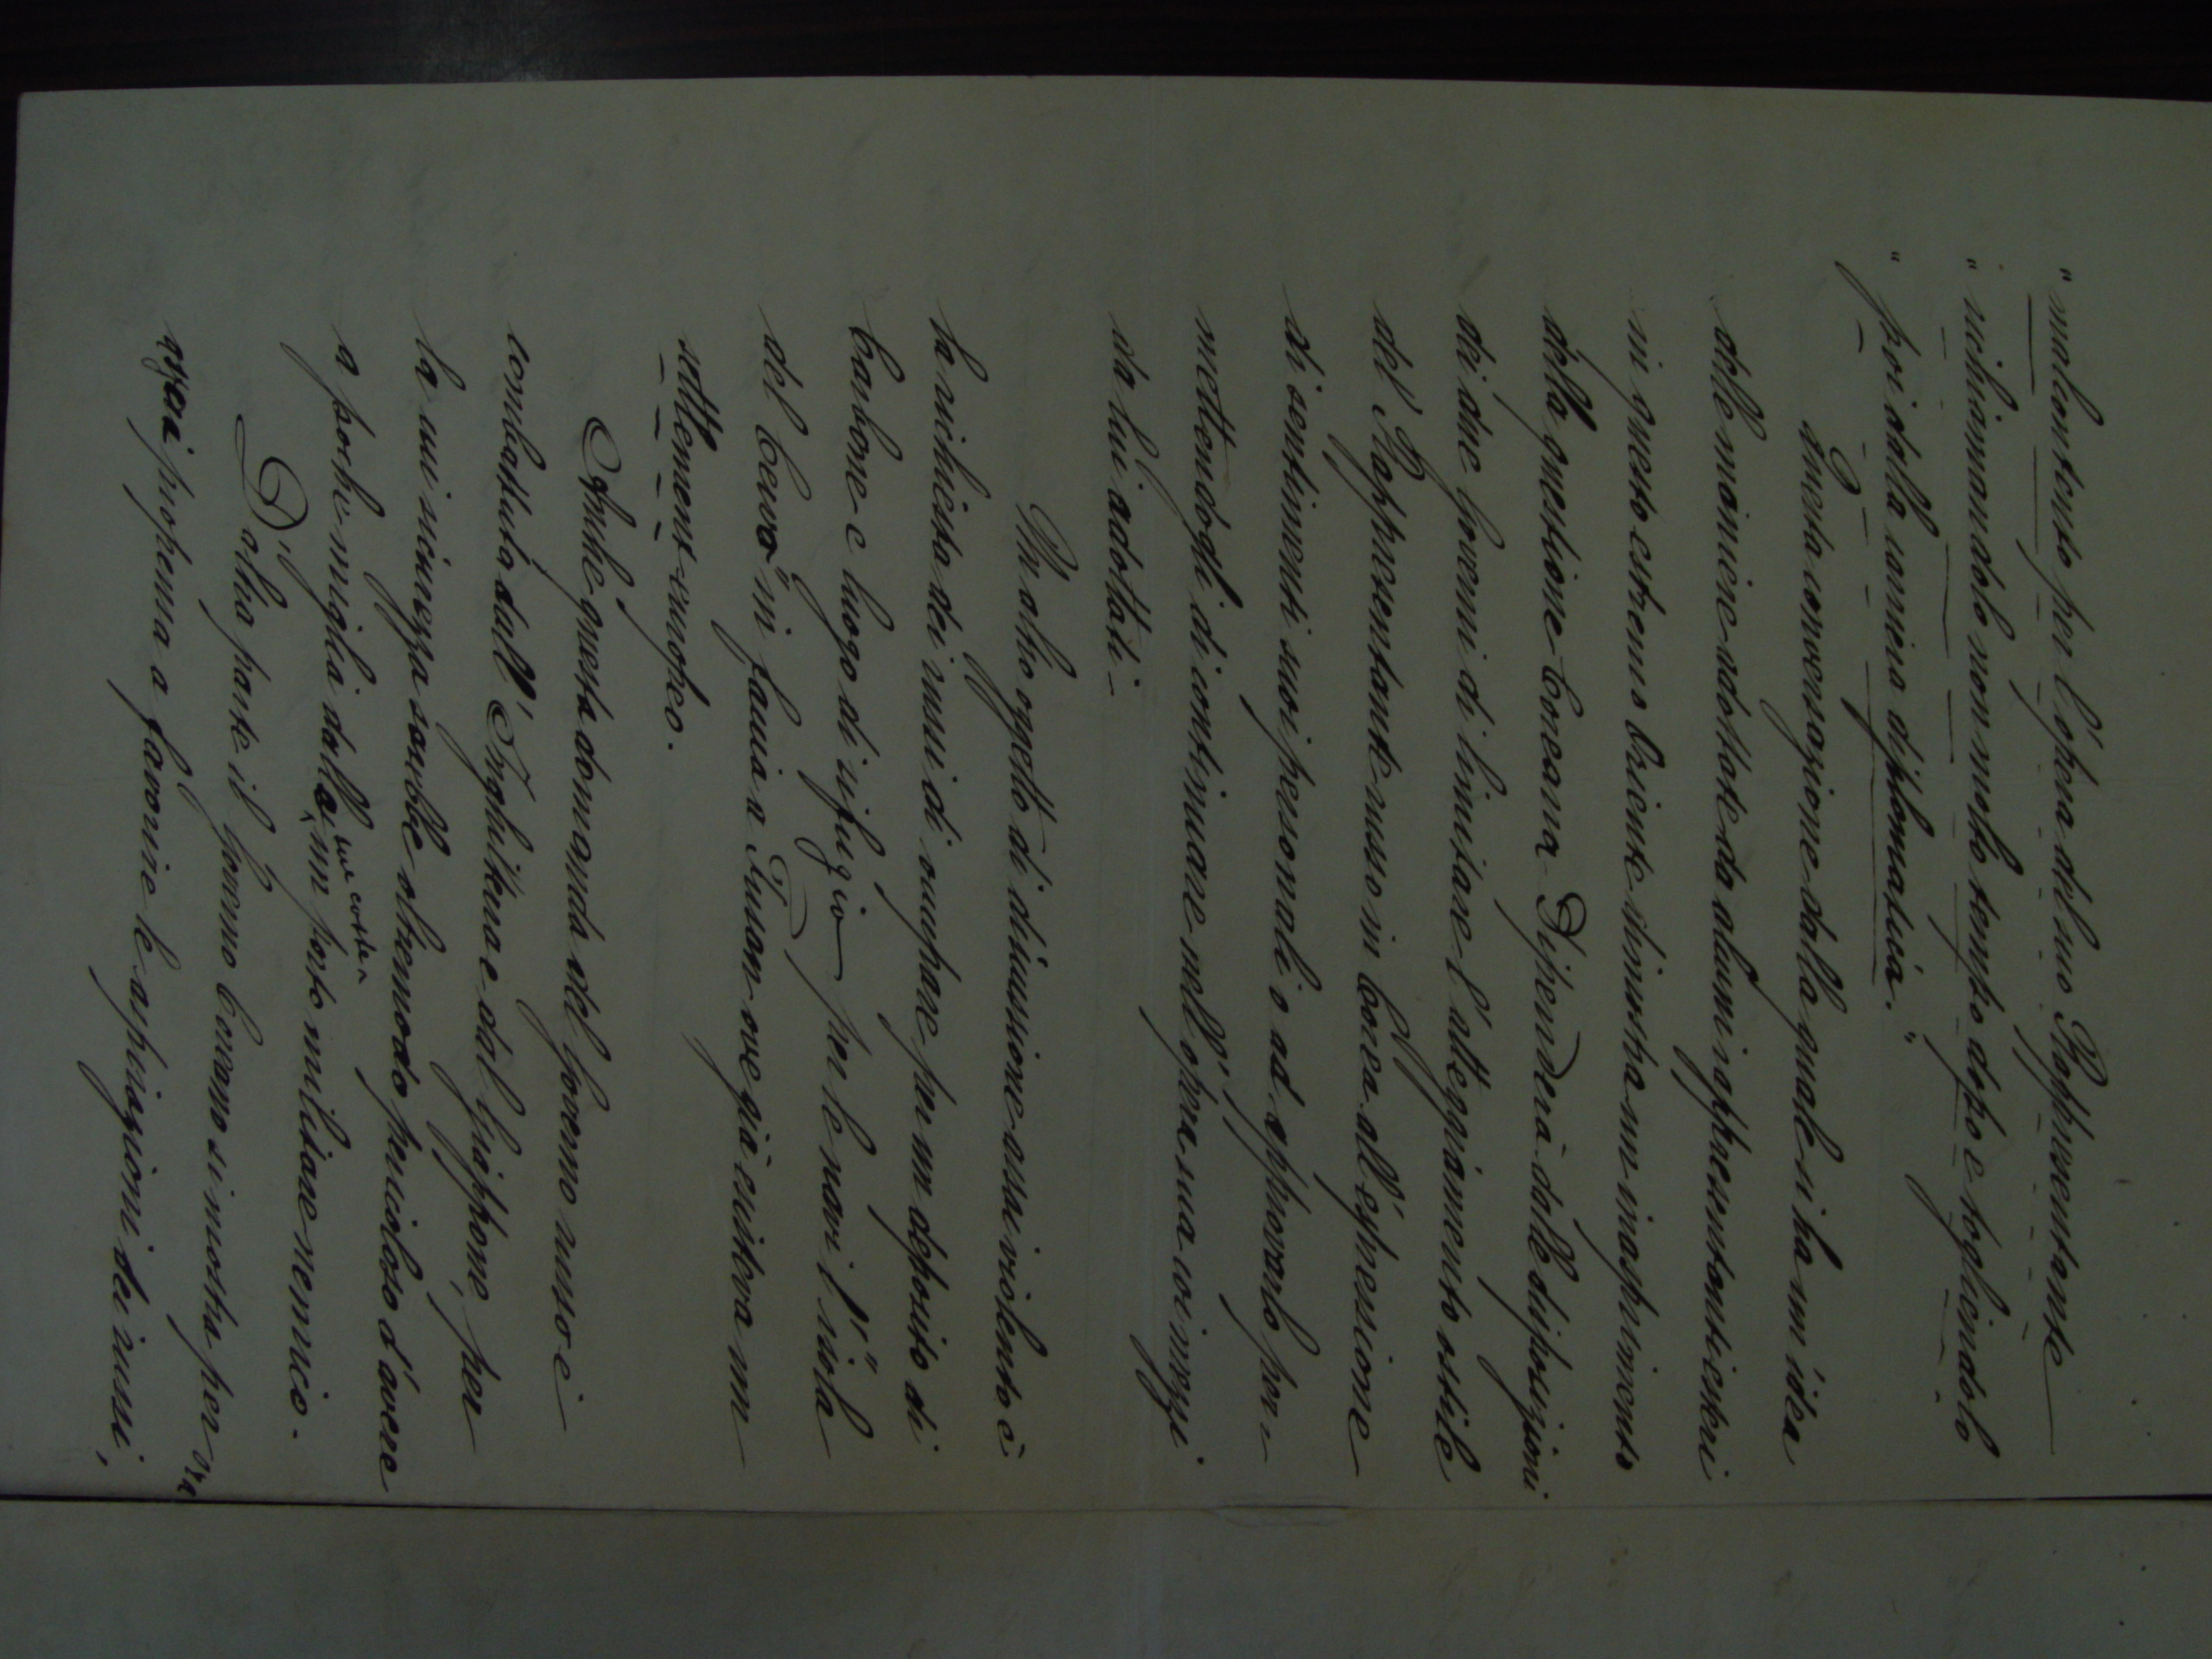 " malcontento per l'opera del suo Rappresentante
" richiamandolo non molto tempo dopo e togliendolo
" poi dalla carriera diplomatica."
Questa conversazione dalla quale si ha un'idea
delle maniere adottate da alcuni rappresentanti esteri
in questo estremo Oriente dimostra un inasprimento
della questione Coreana. Dipenderà dalle disposizioni
dei due Governi di limitare l'atteggiamento ostile
del Rappresentante russo in Corea all'espressione
di sentimenti suoi personali o ad approvarlo per=
mettendogli di continuare nell'opra sua coi mezzi
da lui adottati.
Un altro oggetto di discussione assai violento è
la richiesta dei russi di occupare per un deposito di
carbone e luogo di rifugio per le navi l'"isola
del Cervo" in faccia a Fusan ove già esisteva un
settlement europeo.
Anche questa domanda del Governo russo è
combattuta dall'Inghilterra e dal Giappone, per
la cui sicurezza sarebbe oltremodo pericoloso d'avere
a poche miglia dalla sue coste un porto militare nemico.
D'altra parte il Governo Coreano si mostra per ora
assai propenso a favorire le aspirazioni dei russi,